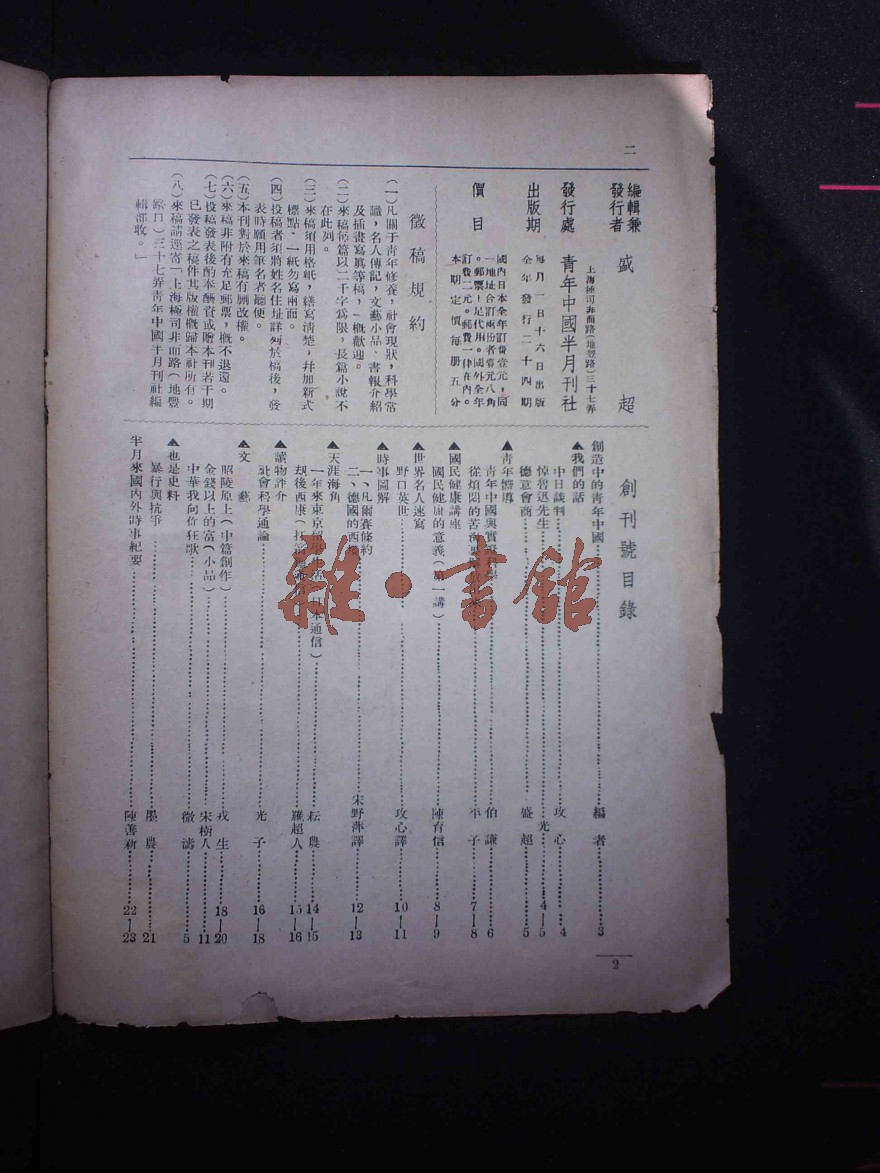 二
編輯兼
發行者 盛 超
發行處 青年中國半月刊社
上海極司非而路(地豐路)三十七弄
出版期 每月一日十六日出版
全年發行二十四期
價目
國內日本全年訂費壹元,同
一地址合訂兩份者壹元八角
。郵票十足代用。國外全年
訂費二元。郵費一律在內。
本期定價每册五分
徵稿規約
(一)凡關于青年修養,社會現狀,科學常
識,名人傳記,文藝小品、書報介紹
及插畫寫眞等稿,一槪歡迎。
(二)來稿每篇以二千字爲限,長篇小說不
在此列。
(三)來稿須用格紙,繕寫清楚,幷加新式
標點,一紙勿寫兩面。
(四)投稿者須將姓名住址詳列於稿後,發
表時願用筆名者聽便。
(五)本刊對於來稿有删改權。
(六)來稿非附有充足郵票,概不退還。
(七)投稿發表後酌奉酬資或贈本刊若干期
已發表之稿件其版權概歸本社所有。
(八)來稿請逕寄「上海極司非而路(地豐
路口)三十七弄靑年中國半月刊社編
輯部收。」
創刊號目錄
創造中的靑年中國 編者 3
▲我們的話
中日談判 攻心 4
悼魯迅先生 光 4—5
德意會商 盛超 5
▲靑年嚮導
靑年中國與實 科學 伯謙 6
從煩悶的苦海裏 來 平子 7—8
▲國民健康講座
國民健康的意義(第一講) 陳育信 8—9
▲世界名人速寫
野口英世 攻心譯 10—11
▲時事圖解
一、凡爾賽條約
二、德國的西 宋野萍譯 12—13
▲天涯海角
一年來東京留學生活(日本通信) 耘農 14—15
刼後西康(打 通信) 羅超人 15—16
▲讀物評介
社會科學通論 光子 16—18
▲文藝
昭陵原上(中篇創作) 戎生 18—20
金錢以上的富(小品) 宋樹人 11
中華我向你狂歌 微濤 5
▲也是史料
暴行與抗爭 墨農 21
半月來國內外時事紀要 陳善新 22—23
2
雜·書館